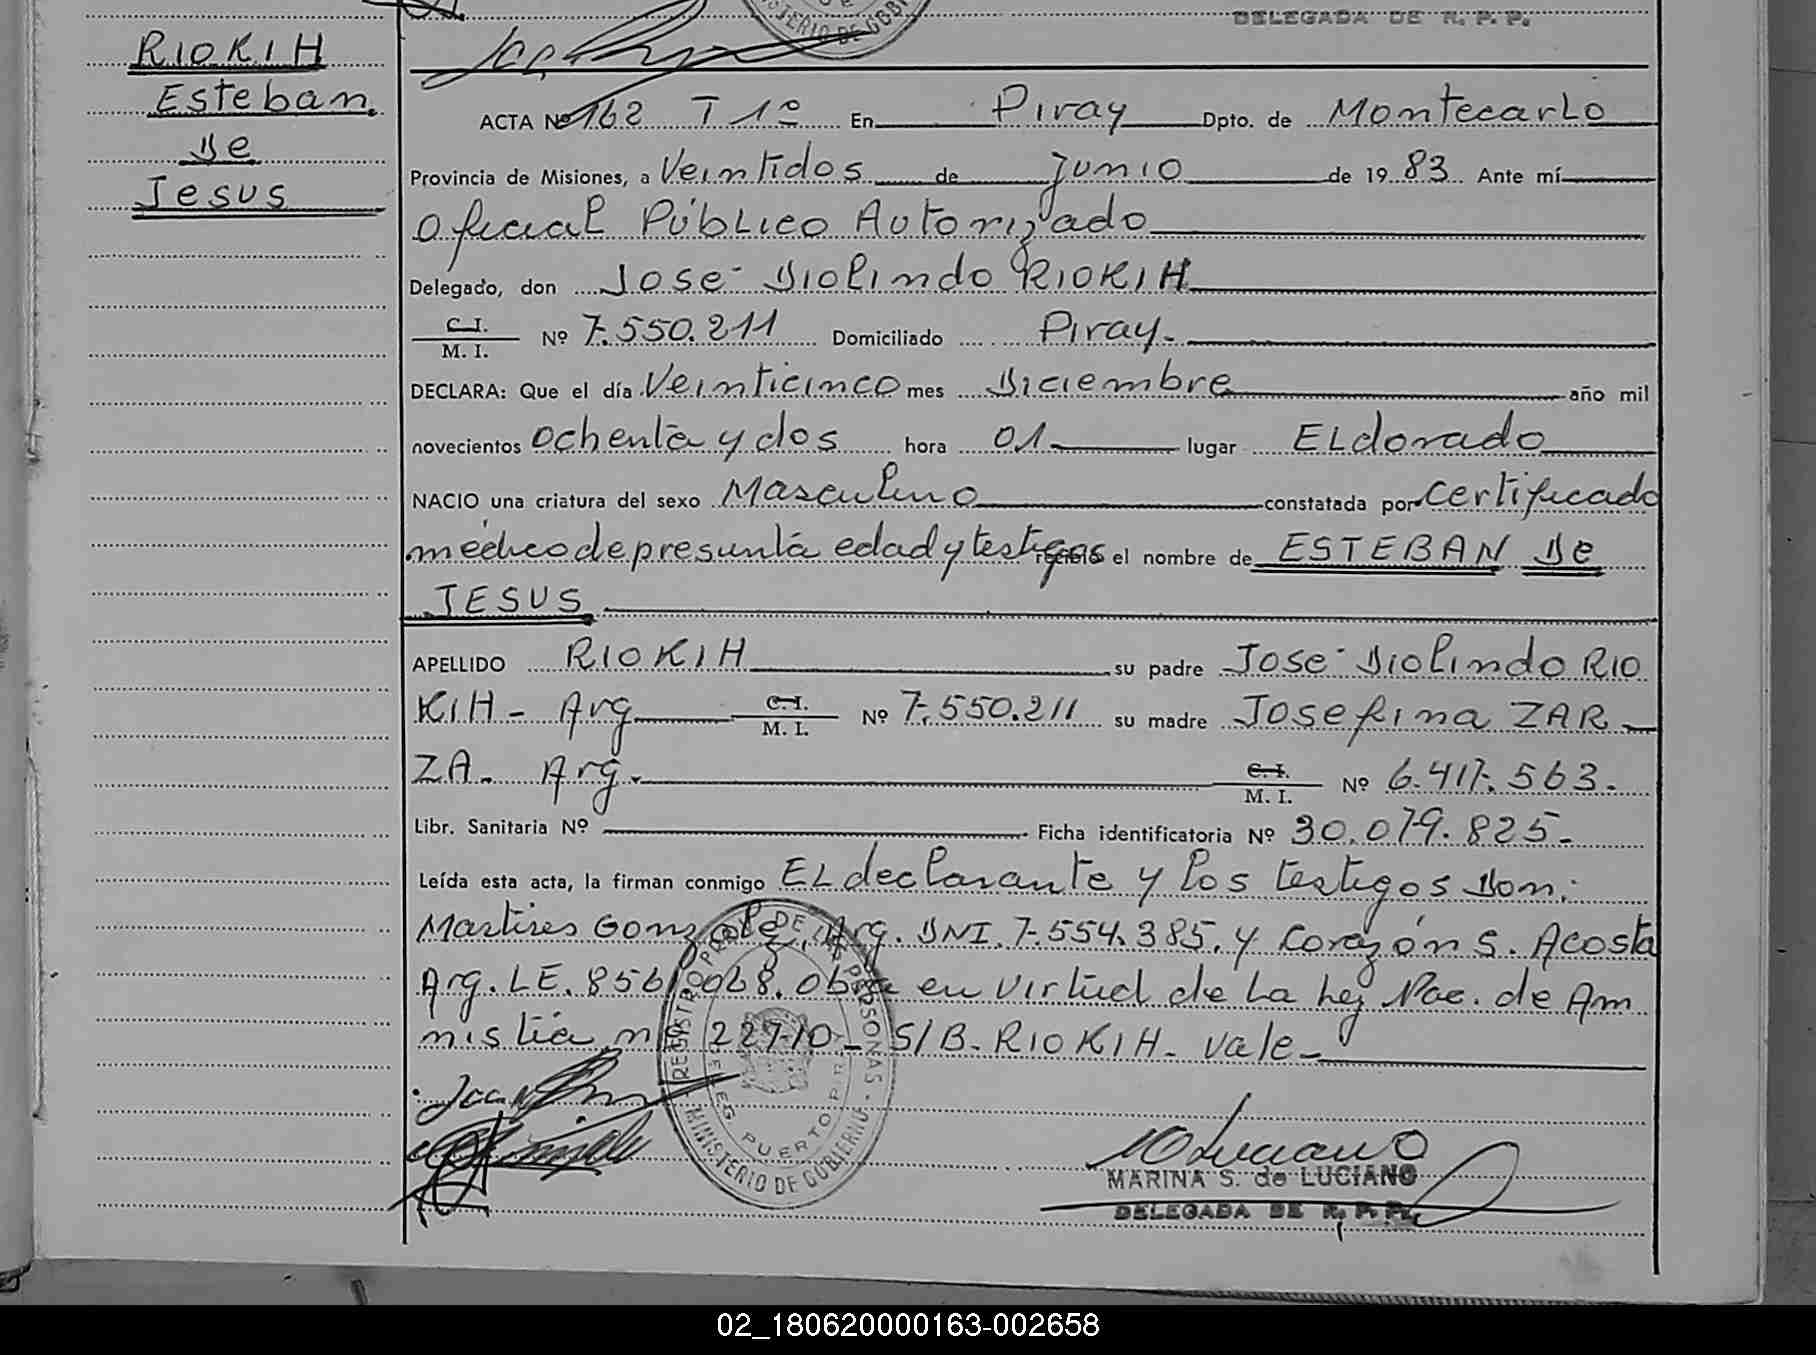 DELEGADA DE R. P. P.
RIOKIH
Esteban
De
Jesus
ACTA Nº 162 T 1º En Piray Dpto. de Montecarlo
Provincia de Misiones, a Veintidos de Junio de 1983 Ante mí
Oficial Público Autorizado
Delegado, don José Diolindo RIOKIH
C.I. / M.I. Nº 7.550.211 Domiciliado Piray.
DECLARA: Que el día Veinticinco mes Diciembre año mil
novecientos ochenta y dos hora 01 lugar ELdorado
NACIO una criatura del sexo Masculino constatada por certificado
médico de presunta edad y testigos recibió el nombre de ESTEBAN De
JESUS
APELLIDO RIOKIH su padre José Diolindo RIO
KIH - Arg C.I. / M.I. Nº 7.550.211 su madre Josefina ZAR
ZA. Arg. C.I. / M.I. Nº 6.417.563.
Libr. Sanitaria Nº Ficha identificatoria Nº 30.079.825-
Leída esta acta, la firman conmigo EL declarante y los testigos Don:
Martires Gonzalez, Arg. DNI. 7.554.385. y Corazón S. Acosta
Arg. LE. 856 068. obra en virtud de la ley Nac. de Am
nistia nº 22710 - S/B. RIOKIH - vale -
REGISTRO PROV. DE LAS PERSONAS
DELEG. PUERTO PIRAY
MINISTERIO DE GOBIERNO
MARINA S. de LUCIANO
DELEGADA DE R. P. P.
02_180620000163-002658